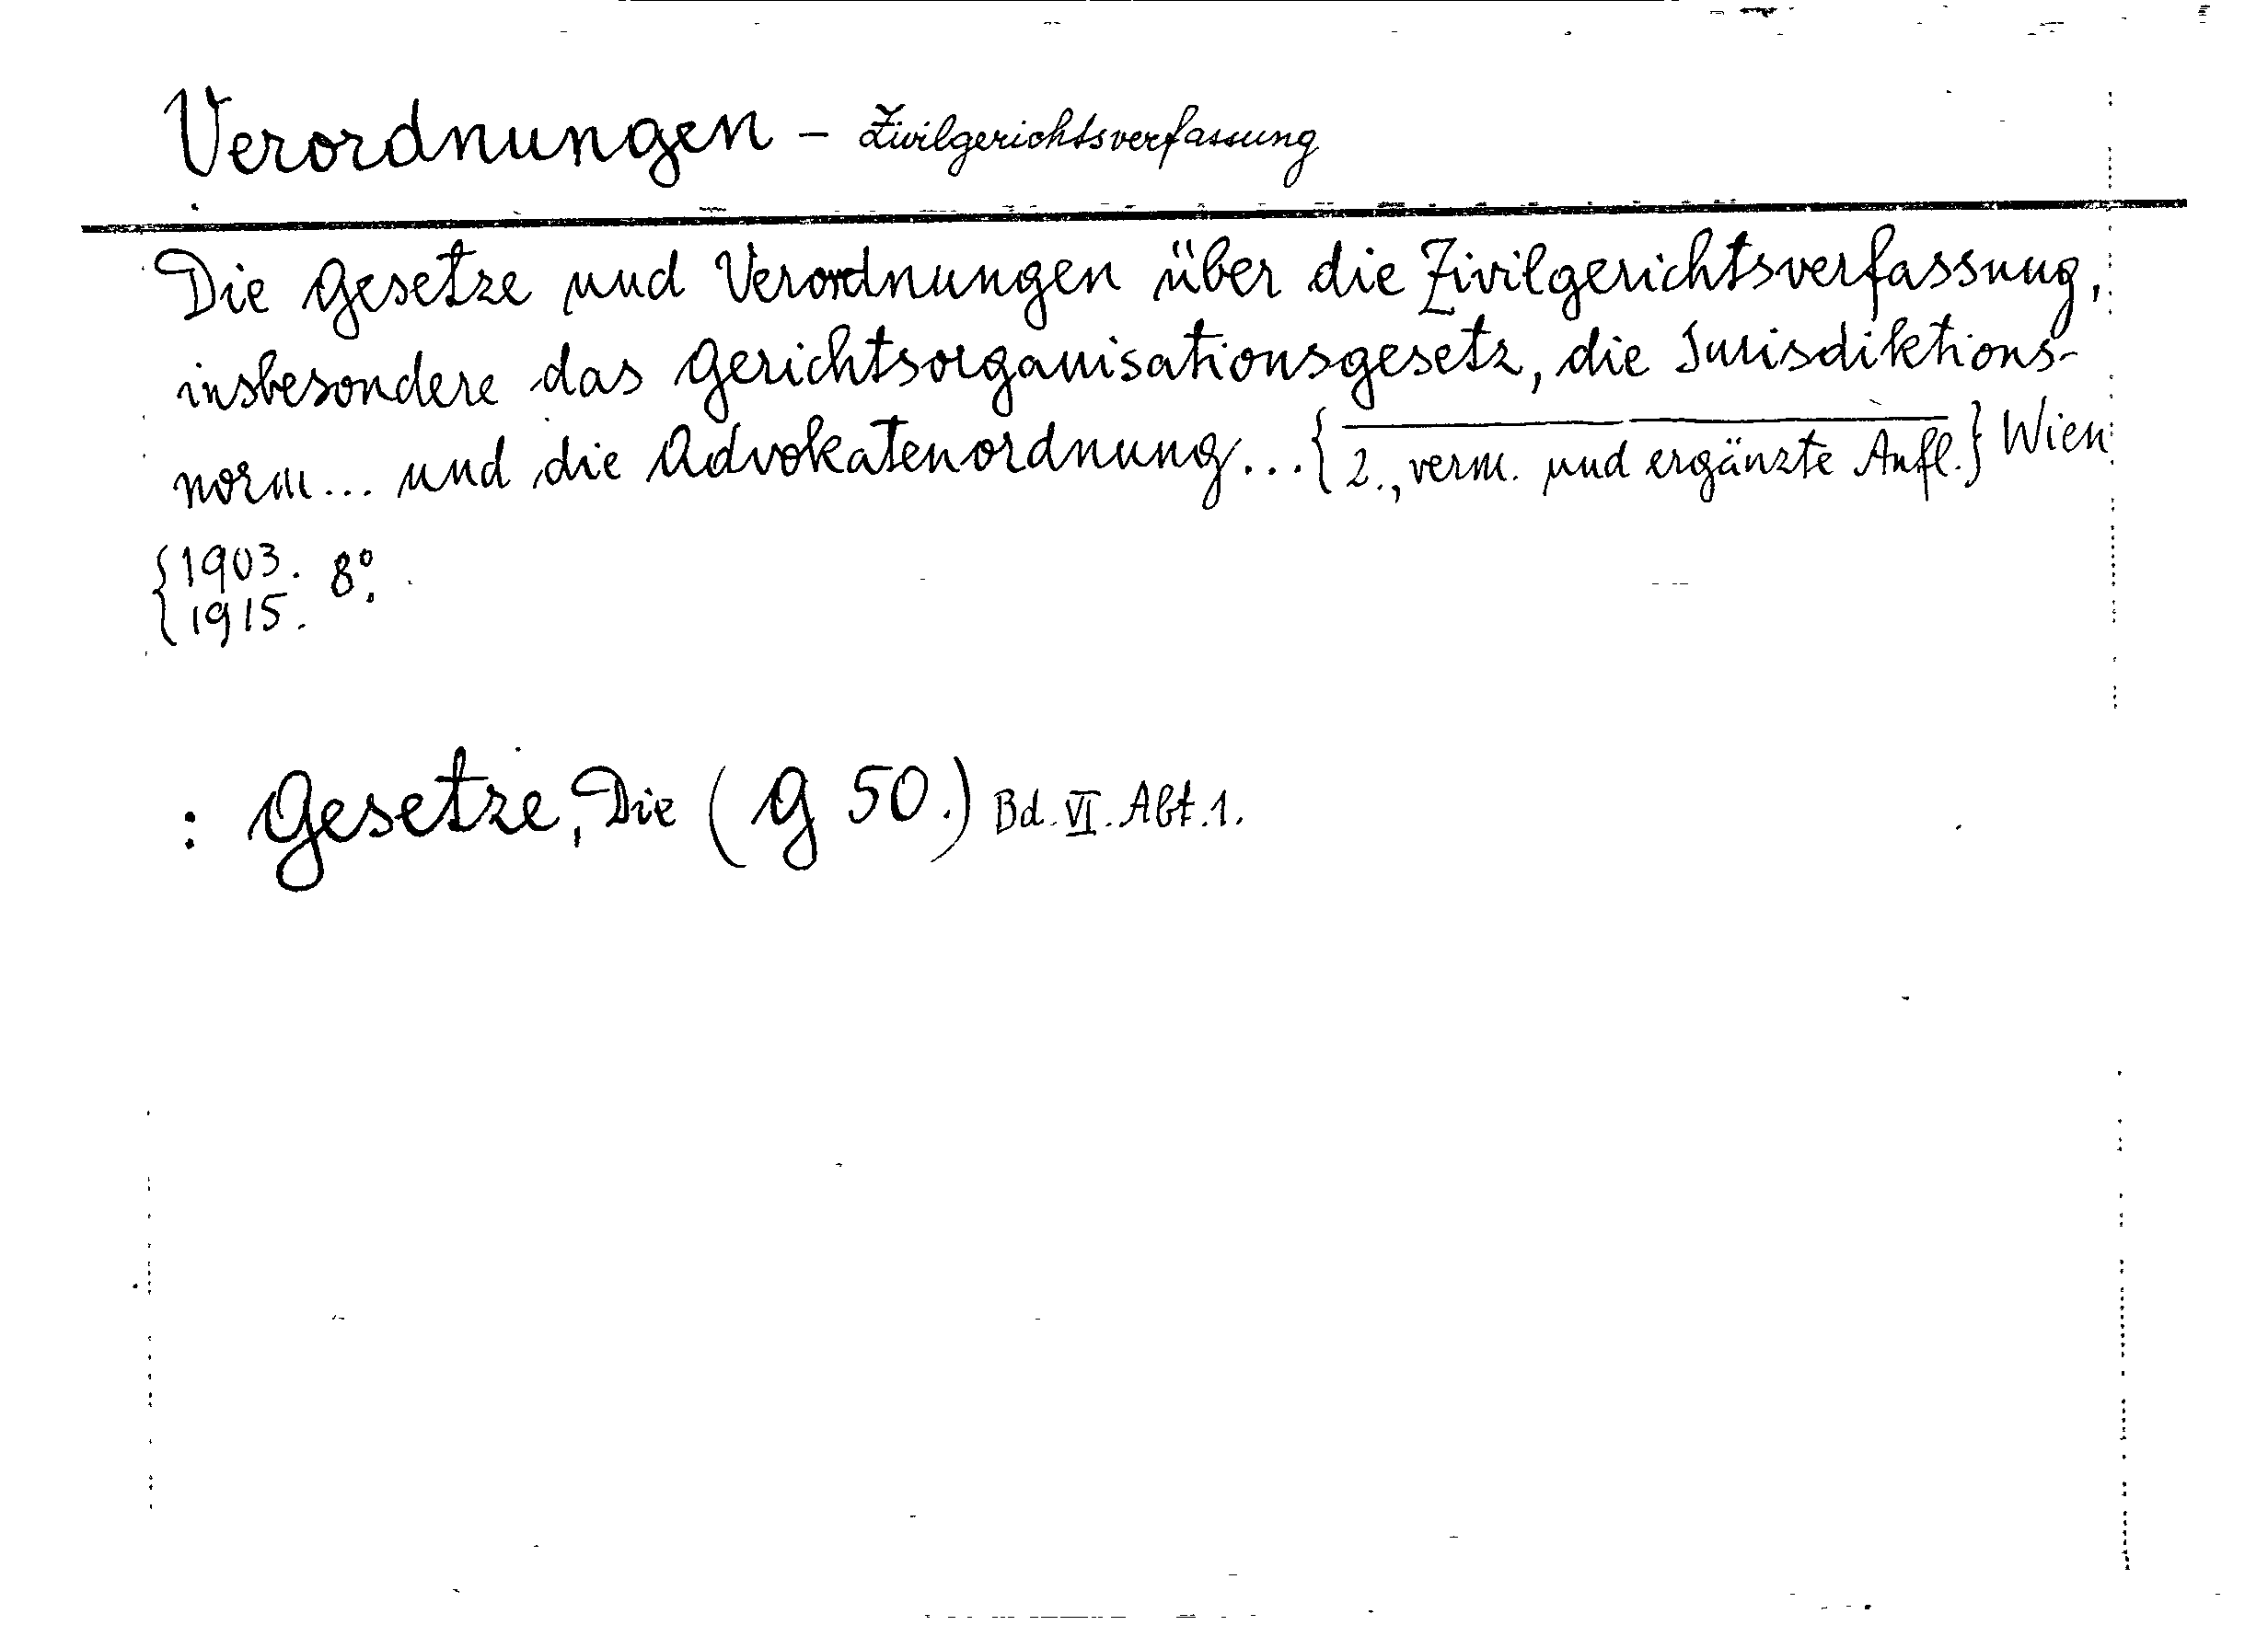 Verordnungen - Zivilgerichtsverfassung
Die Gesetze und Verordnungen über die Zivilgerichtsverfassung,
insbesondere das Gerichtsorganisationsgesetz, die Jurisdiktions-
norm... und die Advokatenordnung...{2., verm. und ergänzte Aufl.} Wien
{1903. 8°.
1915.
: Gesetze, Die (G 50.) Bd. VI. Abt. 1.